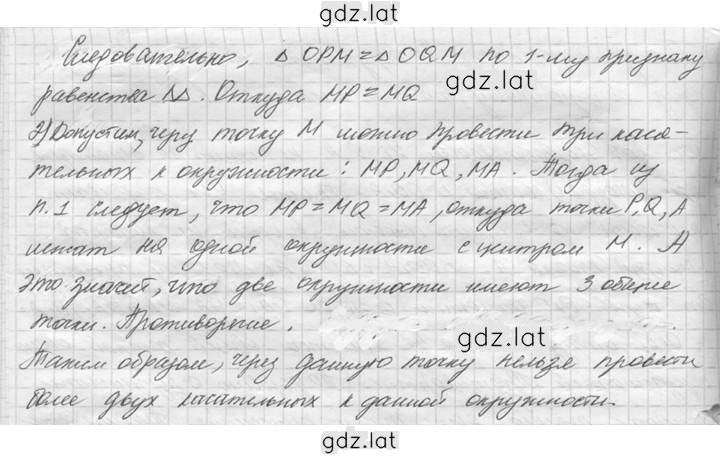 gdz.lat
Следовательно, △ OPM = △ OQM по 1-му признаку
gdz.lat
равенства △△. Откуда MP = MQ
2) Допустим, через точку M можно провести три каса-
тельных к окружности: MP, MQ, MA. Тогда из
п.1 следует, что MP = MQ = MA, откуда точки P, Q, A
лежат на одной окружности с центром M. А
это значит, что две окружности имеют 3 общие
точки. Противоречие.
gdz.lat
Таким образом, через данную точку нельзя провести
более двух касательных к данной окружности.
gdz.lat